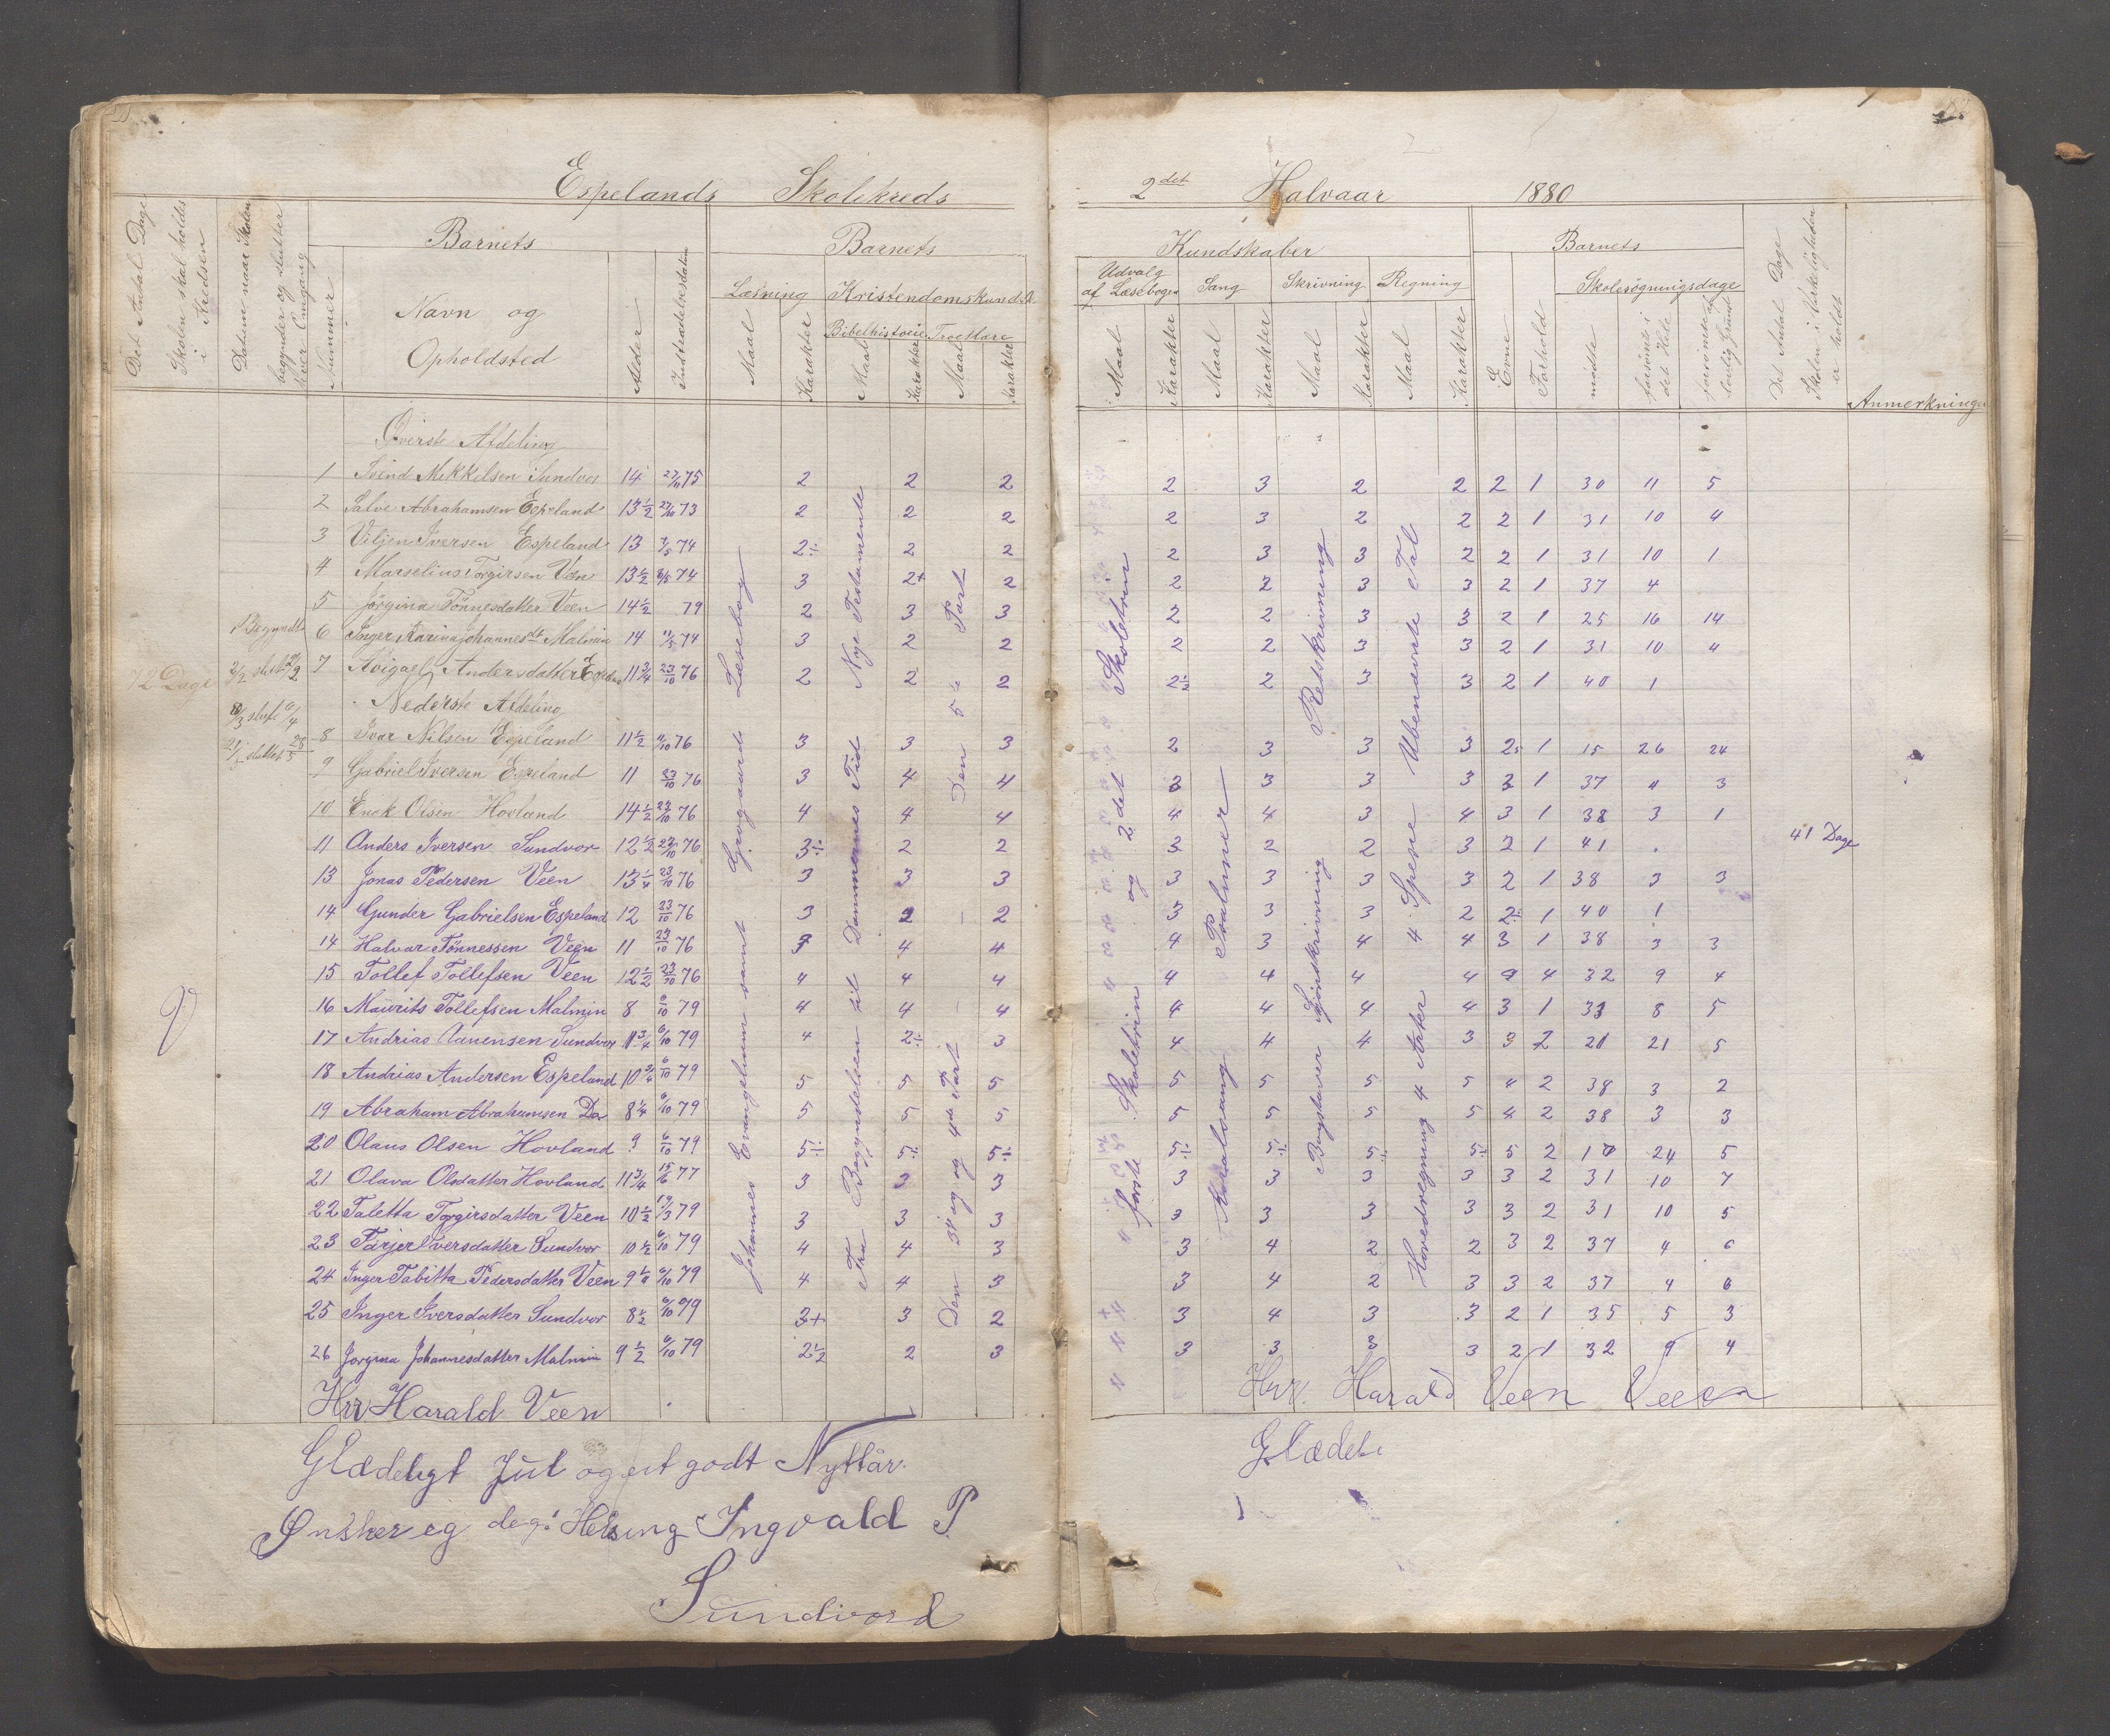 Espelands Skolekreds 2det Halvaar 1880
Det Antal Dage Skolen skal holdes i Kredsen
Datum naar Skolen begynder og slutter hver Omgang
Nummer
Barnets
Navn og Opholdsted
Alder
Indtrædelsesdatum
Barnets Kundskaber
Læsning
Maal Karakter
Kristendomskundsk.
Bibelhistorie
Maal Karakter
Troeslære
Maal Karakter
Udvalg af Læsebogen
Maal Karakter
Sang
Maal Karakter
Skrivning
Maal Karakter
Regning
Maal Karakter
Barnets
Evne
Forhold
Skolesøgningsdage
mødte
forsømt i det Hele
Det Antal Dage Skolen i Virkeligheden er holdt
Anmerkninger
Øverste Afdeling
1 Svind Mikkelsen Sundvor 14 75 2 2 2 2 3 2 2 2 1 30 11 5
2 Salve Abrahamsen Espeland 13½ 73 2 2 2 2 3 2 2 2 1 31 10 4
3 Viljen Iversen Espeland 13 74 2÷ 2 2 2 3 3 2 2 1 31 10 1
4 Marselius Torgirsen Veen 13½ 74 3 2+ 2 2 2 3 3 2 1 37 4
5 Jørgina Tønnesdatter Veen 14½ 79 2 3 3 2 2 3 3 2 1 25 16 14
6 Inger Karina Johannesdt Malmin 14 74 3 2 2 2 2 3 3 2 1 31 10 4
7 Abigael Andersdatter Espeland 11¾ 23/10 76 2 2 2 2½ 2 3 3 2 1 40 1
Nederste Afdeling
8 Ivar Nilsen Espeland 11½ 76 3 3 3 2 3 3 3 2 1 15 26 24
9 Gabriel Iversen Espeland 11 23/10 76 3 4 4 3 3 3 3 3 1 37 4 3
10 Enok Olsen Hovland 14½ 23/10 76 4 4 4 4 4 3 4 3 1 38 3 1
11 Anders Iversen Sundvor 12½ 23/10 76 3÷ 2 2 3 2 2 3 2 1 41
13 Jonas Pedersen Veen 13¼ 23/10 76 3 3 3 3 3 3 3 2 1 38 3 3
14 Gunder Gabrielsen Espeland 12 23/10 76 3 2 2 3 3 3 2 2÷ 1 40 1
14 Halvar Tønnessen Veen 11 23/10 76 4 4 4 3 4 4 3 1 38 3 3
15 Tollef Tollefsen Veen 12½ 23/10 76 4 4 4 4 4 4 4 4 4 32 9 4
16 Maurits Tollefsen Malmin 8 6/10 79 4 4 4 4 4 4 4 3 1 33 8 5
17 Andrias Aanensen Sundvor 6/10 79 4 2÷ 3 4 4 4 3 3 2 20 21 5
18 Andrias Andersen Espeland 10¾ 6/10 79 5 5 5 5 5 5 5 4 2 38 3 2
19 Abraham Abrahamsen Do 8¼ 6/10 79 5 5 5 5 5 5 5 4 2 38 3 3
20 Olaus Olsen Hovland 9 6/10 79 5÷ 5÷ 5÷ 5÷ 5÷ 5÷ 5÷ 5 2 17 24 5
21 Olava Olsdatter Hovland 11¾ 77 3 3 3 3 3 3 3 3 2 31 10 7
22 Taletta Torgirsdatter Veen 10½ 79 3 3 3 3 3 3 3 3 2 31 10 5
23 Tarjer Iversdatter Sundvor 10½ 6/10 79 4 4 3 3 4 2 2 3 2 37 4 6
24 Inger Tabitta Pedersdatter Veen 6/10 79 4 4 3 3 4 2 3 3 2 37 4 6
25 Inger Iversdatter Sundvor 8½ 6/10 79 3+ 3 2 3 4 3 3 2 1 35 5 3
26 Jorgina Johannesdatter Malmin 9½ 6/10 79 2½ 2 3 3 3 3 3 2 1 32 9 4
72 Dage
Begyndt
41 Dage
Johannes Evangelium samt Læsebog
Fra Begyndelsen til Dommernes Tid Nye Testamente
Den 3die og 4de Part
Den 5te Part
første Skoletrin og 2det Skoletrin
Koralsang Psalmer
Bogstaver Skjønskrivning Retskrivning
Hovedregning 4 Arter 4 Speser Ubenævnte Tal
Hrr Harald Veen
Hrr. Harald Veen Veen
Glædeligt Jul og eit godt Nyttår.
Ønsker eg deg. Helsing Ingvald P
Sundivord
Glædele